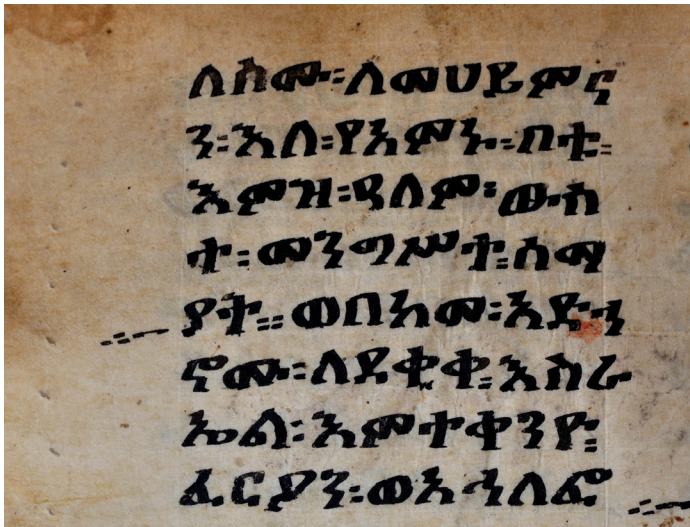 ለስሙ፡ለመሀይምና
ን፡እለ፡የአምኑ፡በቱ፡
እምዝ፡ዓለም፡ውስ
ተ፡መንግሥተ፡ሰማ
ያት። ወበከመ፡አድኀ
ኖሙ፡ለደቂቀ፡እስራ
ኤል፡እምተቀንዮ፡
ፈርዖን፡ወአኅለፎ